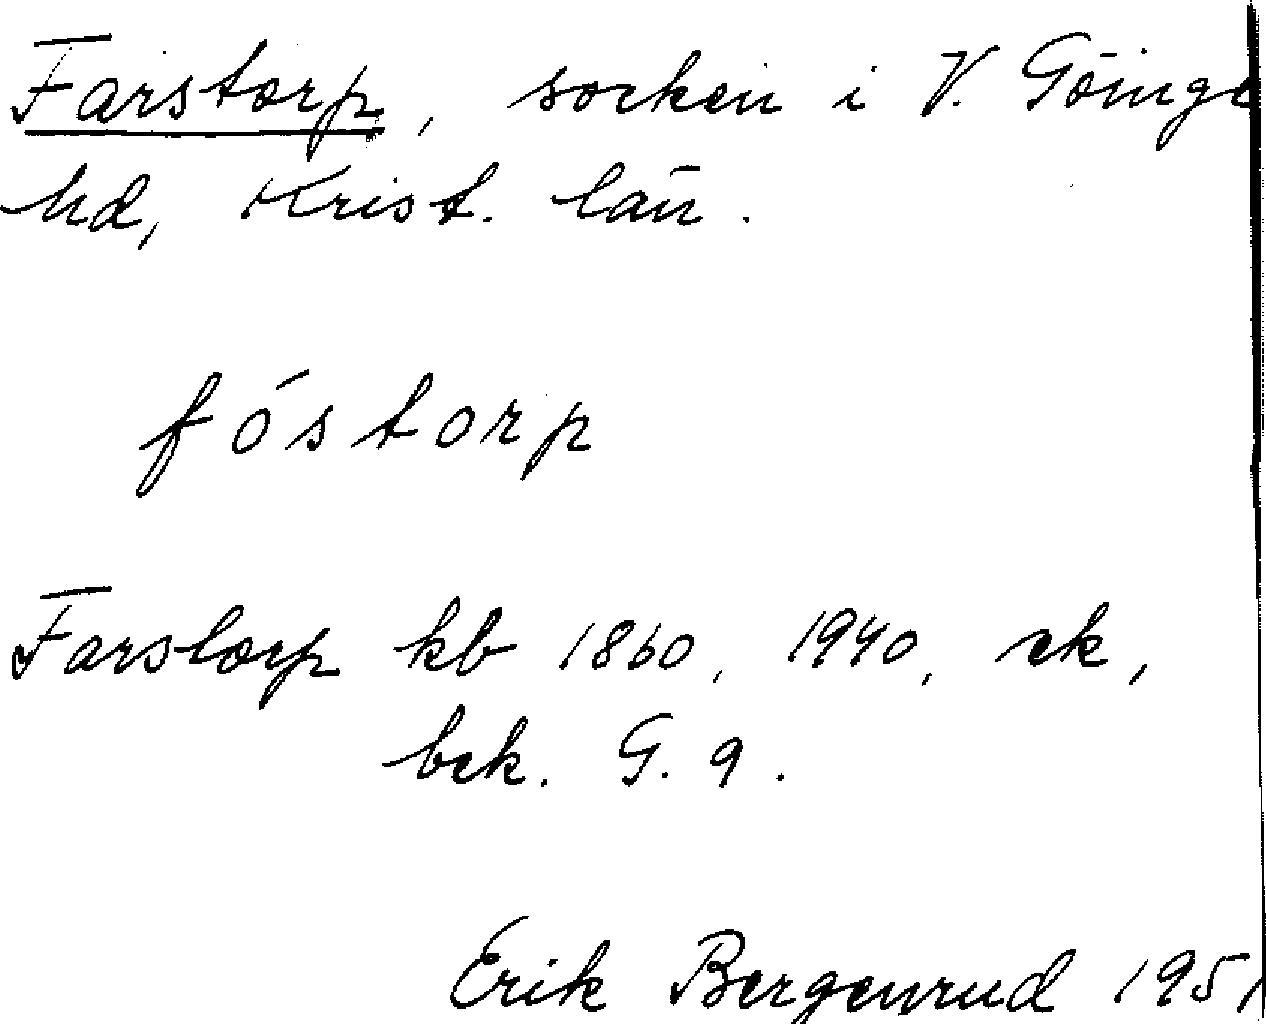 Farstorp, socken i V. Göinge
hd, Krist. län.
fóstorp
Farstorp kb 1860, 1940, ek,
bek. G. 9.
Erik Bergenrud 1951